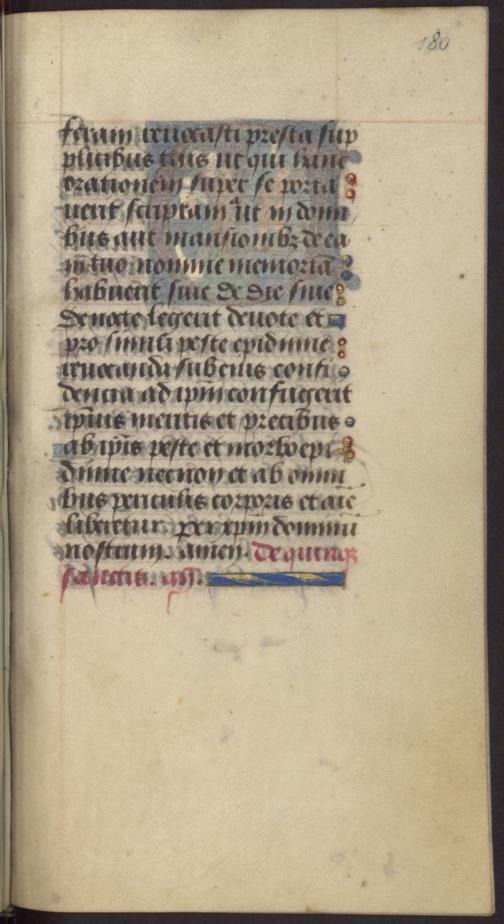 180
feram reuocasti presta sup
plicibus tuis ut qui hanc
orationem super se porta
uerit scriptam aut in domi
bus aut mansionibꝫ de ea
in tuo nomine memoriā
habuerit siue de die siue
de nocte legerit deuote et
pro simili peste epidimie
reuocanda sub eius confi
dencia ad ipm̄ confugerit
ipsius meritis et precibus
ab ipīs peste et morbo epi
dimie necnon et ab omni
bus periculis corporis et aīe
liberetur. per xpm̄ dominū
nostrum. amen. De quinqꝫ
sanctis. añ.